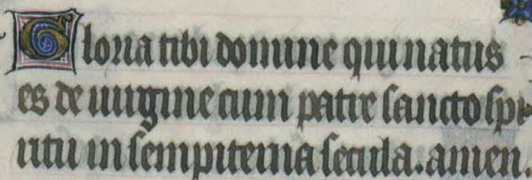 Gloria tibi domine qui natus
es de uirgine cum patre sancto spi
ritu in sempiterna secula. amen.